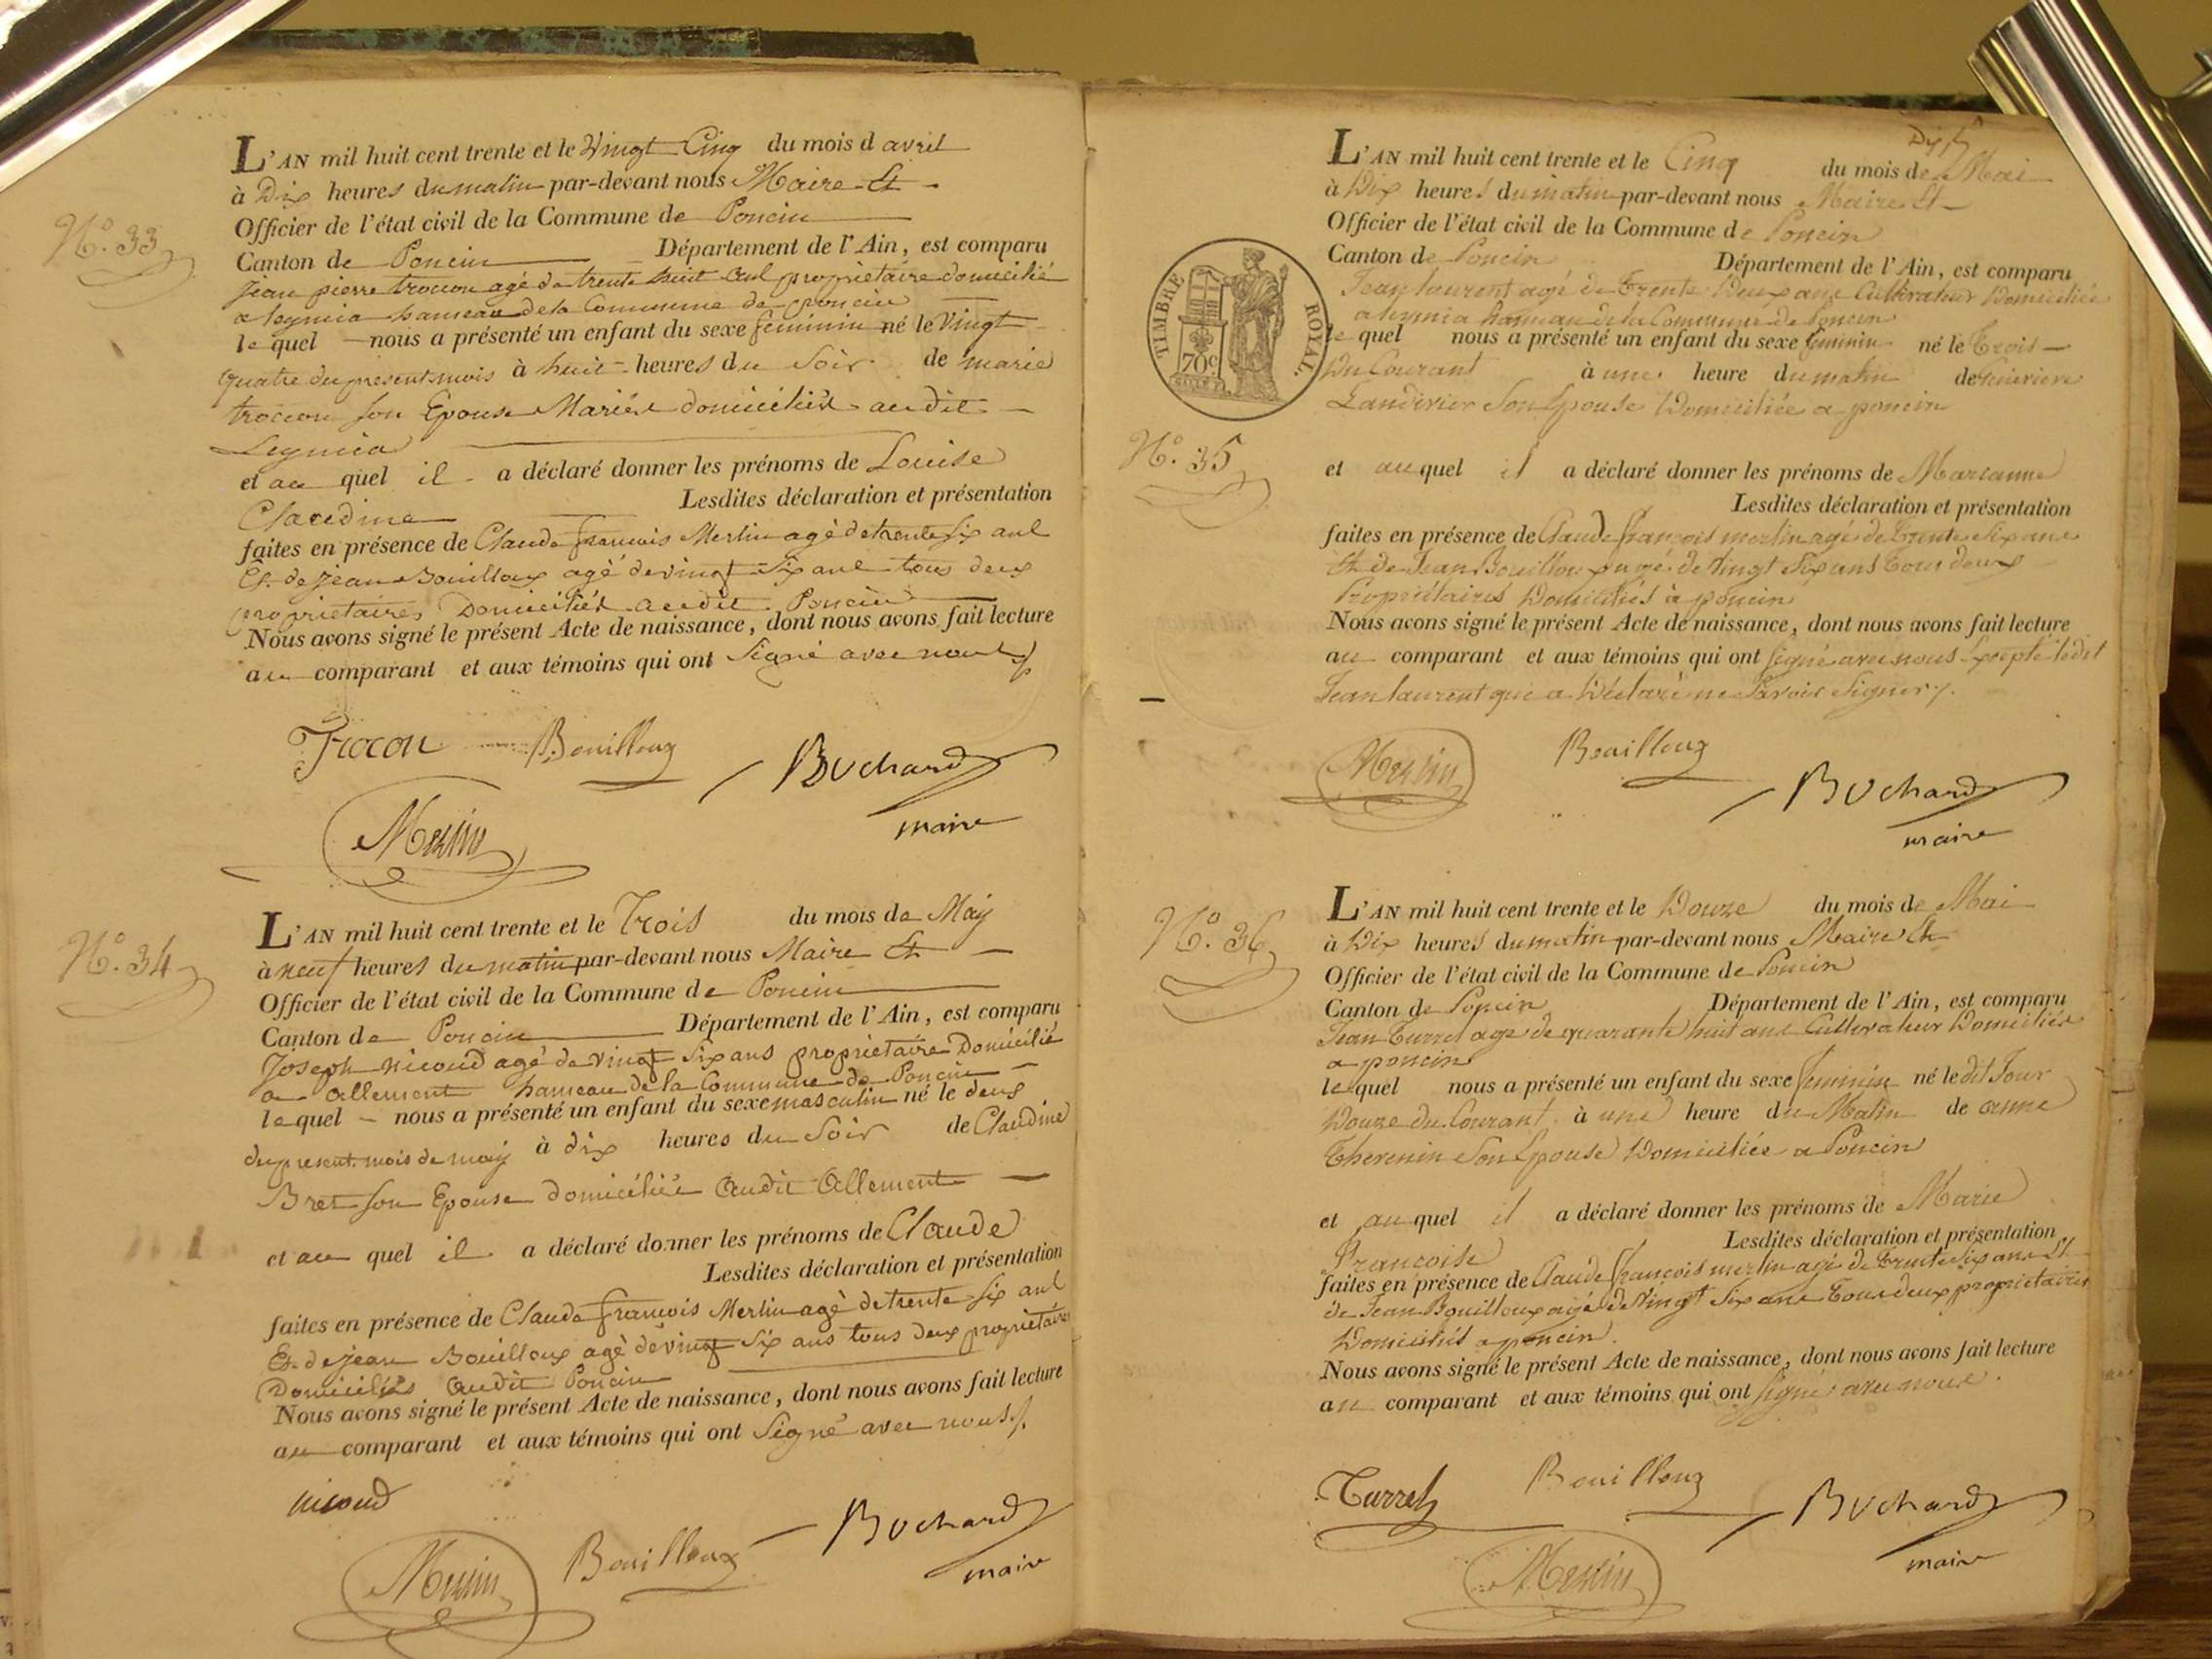 N.° 33
L'AN mil huit cent trente et le Vingt Cinq du mois d avril
à Dix heures du matin par-devant nous Maire Et
Officier de l'état civil de la Commune de Poncin
Canton de Poncin Département de l'Ain, est comparu
Jean pierre trocon agé de trente huit ans proprietaire domicilié
a leymia hameau de la Commune de poncin
le quel nous a présenté un enfant du sexe feminin né le Vingt
quatre du present mois à huit heures du Soir de marie
trocon son Epouse Mariés domiciliés audit
Leymia
et au quel il a déclaré donner les prénoms de Louise
Claudine Lesdites déclaration et présentation
faites en présence de Claude francois Merlin agé de trente six ans
Et de jean Bouilloux agé de vingt Six ans tous deux
proprietaires Domiciliés audit Poncin
Nous avons signé le présent Acte de naissance, dont nous avons fait lecture
au comparant et aux témoins qui ont Signé avec nous
Trocon Bouilloux Bochard
maire
Merlin
N.° 34
L'AN mil huit cent trente et le Trois du mois de May
à neuf heures du matin par-devant nous Maire Et
Officier de l'état civil de la Commune de Poncin
Canton de Poncin Département de l'Ain, est comparu
Joseph nicoud agé de vingt Six ans proprietaire Domicilié
a allement hameau de la Commune de Poncin
le quel nous a présenté un enfant du sexe masculin né le deux
du present mois de may à dix heures du Soir de Claudine
Bret son Epouse domiciliée audit Allement
et au quel il a déclaré donner les prénoms de Claude
Lesdites déclaration et présentation
faites en présence de Claude francois Merlin agé de trente six ans
Et de jean Bouilloux agé de vingt Six ans tous deux proprietaires
Domiciliés audit Poncin
Nous avons signé le présent Acte de naissance, dont nous avons fait lecture
au comparant et aux témoins qui ont Signé avec nous
nicoud
Merlin Bouilloux Bochard
maire
TIMBRE ROYAL.
70c
N.° 35
L'AN mil huit cent trente et le Cinq du mois de Mai
à Dix heures du matin par-devant nous Maire Et
Officier de l'état civil de la Commune de Poncin
Canton de Poncin Département de l'Ain, est comparu
Jean laurent agé de Trente Deux ans Cultivateur Domicilié
a leymia hameau de la Commune de Poncin
le quel nous a présenté un enfant du sexe feminin né le Trois
Du Courant à une heure du matin de
Landivier Son Epouse Domiciliée a poncin
et au quel il a déclaré donner les prénoms de Marianne
Lesdites déclaration et présentation
faites en présence de Claude françois merlin agé de Trente Six ans
Et de Jean Bouilloux agé de Vingt Six ans Tous deux
Propriétaires Domiciliés à poncin
Nous avons signé le présent Acte de naissance, dont nous avons fait lecture
au comparant et aux témoins qui ont signé avec nous Excepté ledit
Jean laurent qui a Déclaré ne Savoir Signer
Merlin Bouilloux Bochard
maire
N.° 36
L'AN mil huit cent trente et le Douze du mois de Mai
à Dix heures du matin par-devant nous Maire Et
Officier de l'état civil de la Commune de Poncin
Canton de Poncin Département de l'Ain, est comparu
Jean Turrel age de quarante huit ans Cultivateur Domicilié
a poncin
le quel nous a présenté un enfant du sexe feminin né le dit Jour
Douze du Courant à une heure du Matin de anne
Thevenin Son Epouse Domiciliée a Poncin
et au quel il a déclaré donner les prénoms de Marie
Francoise Lesdites déclaration et présentation
faites en présence de Claude François merlin agé de Trente Six ans Et
de Jean Bouilloux agé de Vingt Six ans Tous deux proprietaires
Domiciliés a poncin.
Nous avons signé le présent Acte de naissance, dont nous avons fait lecture
au comparant et aux témoins qui ont signés avec nous.
Turrel Bouilloux Bochard
maire
Merlin